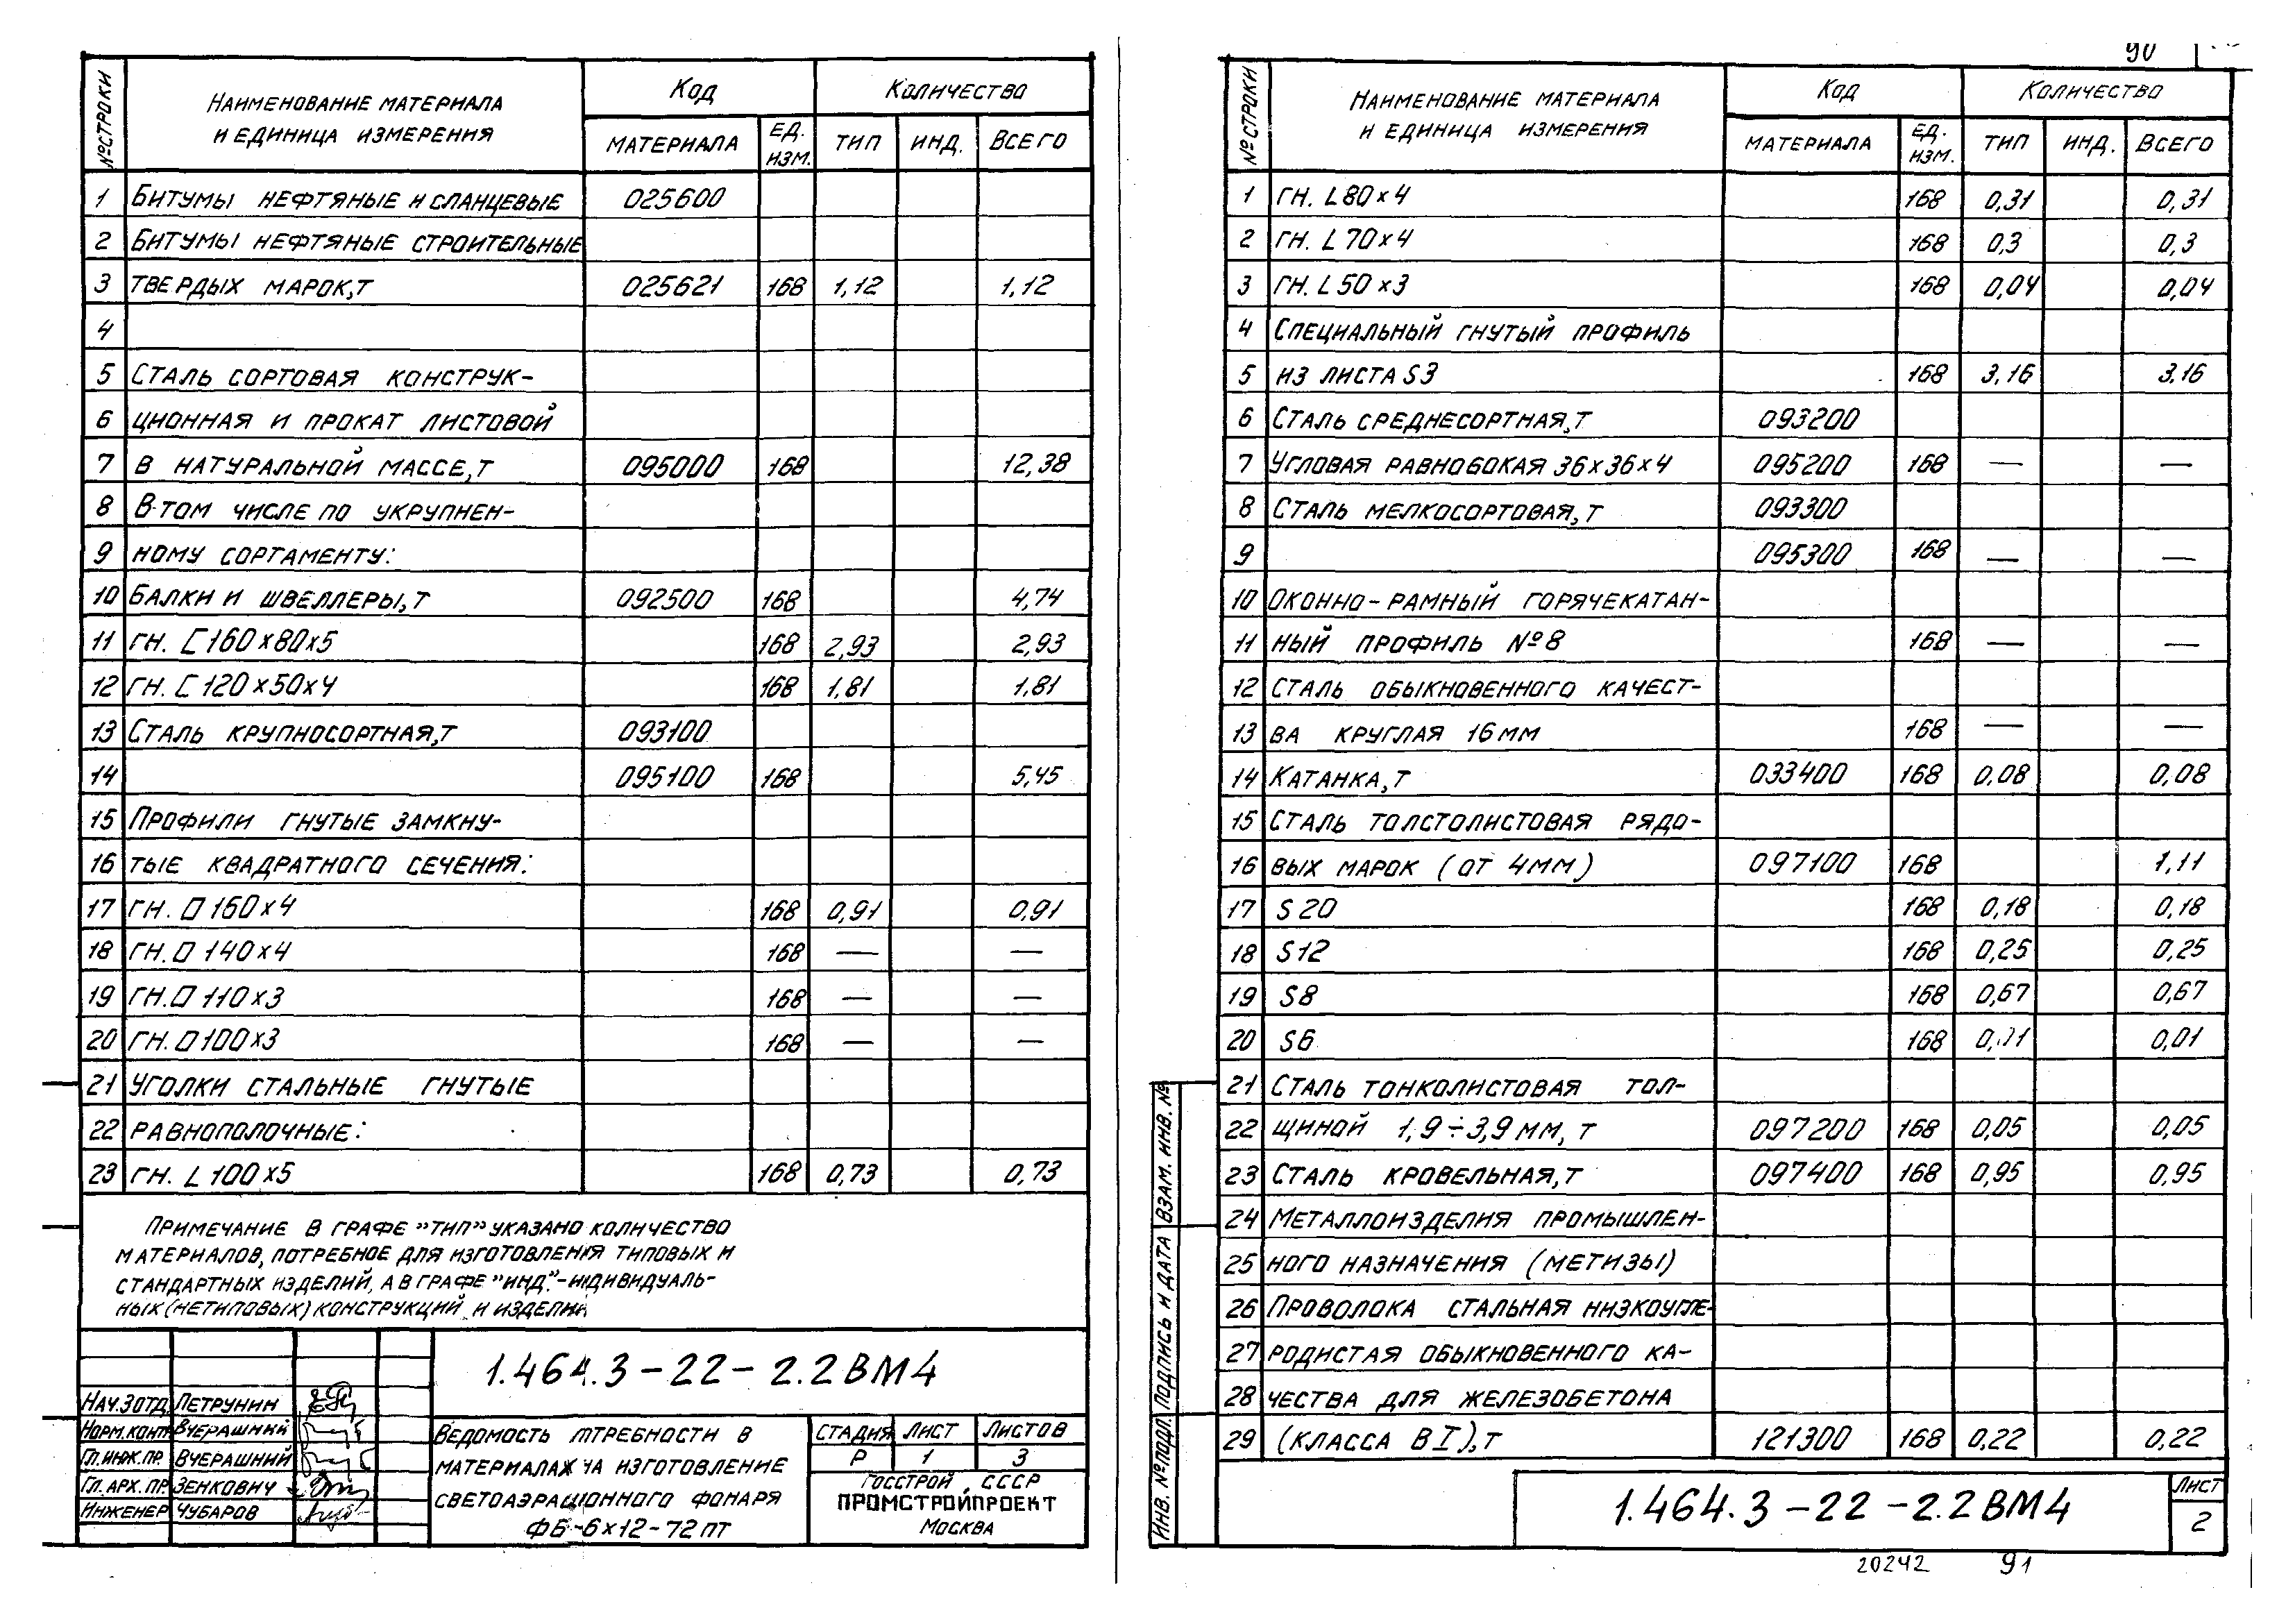 № СТРОКИ | НАИМЕНОВАНИЕ МАТЕРИАЛА И ЕДИНИЦА ИЗМЕРЕНИЯ | Код | Количество
МАТЕРИАЛА | ЕД. ИЗМ. | ТИП | ИНД. | ВСЕГО
1 Битумы нефтяные и сланцевые 025600
2 Битумы нефтяные строительные
3 твердых марок, т 025621 168 1,12 1,12
4
5 Сталь сортовая конструк-
6 ционная и прокат листовой
7 в натуральной массе, т 095000 168 12,38
8 В том числе по укрупнен-
9 ному сортаменту:
10 Балки и швеллеры, т 092500 168 4,74
11 гн. [ 160×80×5 168 2,93 2,93
12 гн. [ 120×50×4 168 1,81 1,81
13 Сталь крупносортная, т 093100
14 095100 168 5,45
15 Профили гнутые замкну-
16 тые квадратного сечения:
17 гн. □ 160×4 168 0,91 0,91
18 гн. □ 140×4 168 — —
19 гн. □ 110×3 168 — —
20 гн. □ 100×3 168 — —
21 Уголки стальные гнутые
22 равнополочные:
23 гн. L 100×5 168 0,73 0,73
Примечание В графе "тип" указано количество
материалов, потребное для изготовления типовых и
стандартных изделий, а в графе "инд."-индивидуаль-
ных (нетиповых) конструкций и изделий
1.464.3-22-2.2ВМ4
Нач.3отд. Петрунин
Норм.конт. Вчерашний
Гл.инж.пр. Вчерашний
Гл.арх.пр. Зенкович
Инженер Чубаров
Ведомость птребности в
материалах на изготовление
светоаэрационного фонаря
ФБ-6×12-72пт
Стадия Лист Листов
Р 1 3
Госстрой СССР
ПРОМСТРОЙПРОЕКТ
Москва
90
№ СТРОКИ | НАИМЕНОВАНИЕ МАТЕРИАЛА И ЕДИНИЦА ИЗМЕРЕНИЯ | Код | Количество
МАТЕРИАЛА | ЕД. ИЗМ. | ТИП | ИНД. | ВСЕГО
1 гн. L 80×4 168 0,31 0,31
2 гн. L 70×4 168 0,3 0,3
3 гн. L 50×3 168 0,04 0,04
4 Специальный гнутый профиль
5 из листа S3 168 3,16 3,16
6 Сталь среднесортная, т 093200
7 Угловая равнобокая 36×36×4 095200 168 — —
8 Сталь мелкосортовая, т 093300
9 095300 168 — —
10 Оконно-рамный горячекатан-
11 ный профиль №8 168 — —
12 Сталь обыкновенного качест-
13 ва круглая 16 мм 168 — —
14 Катанка, т 033400 168 0,08 0,08
15 Сталь толстолистовая рядо-
16 вых марок (от 4мм) 097100 168 1,11
17 S 20 168 0,18 0,18
18 S12 168 0,25 0,25
19 S8 168 0,67 0,67
20 S6 168 0,01 0,01
21 Сталь тонколистовая тол-
22 щиной 1,9÷3,9 мм, т 097200 168 0,05 0,05
23 Сталь кровельная, т 097400 168 0,95 0,95
24 Металлоизделия промышлен-
25 ного назначения (метизы)
26 Проволока стальная низкоугле-
27 родистая обыкновенного ка-
28 чества для железобетона
29 (класса ВI), т 121300 168 0,22 0,22
ИНВ. № ПОДЛ. ПОДПИСЬ И ДАТА ВЗАМ. ИНВ. №
1.464.3-22-2.2ВМ4
Лист
2
20242 91